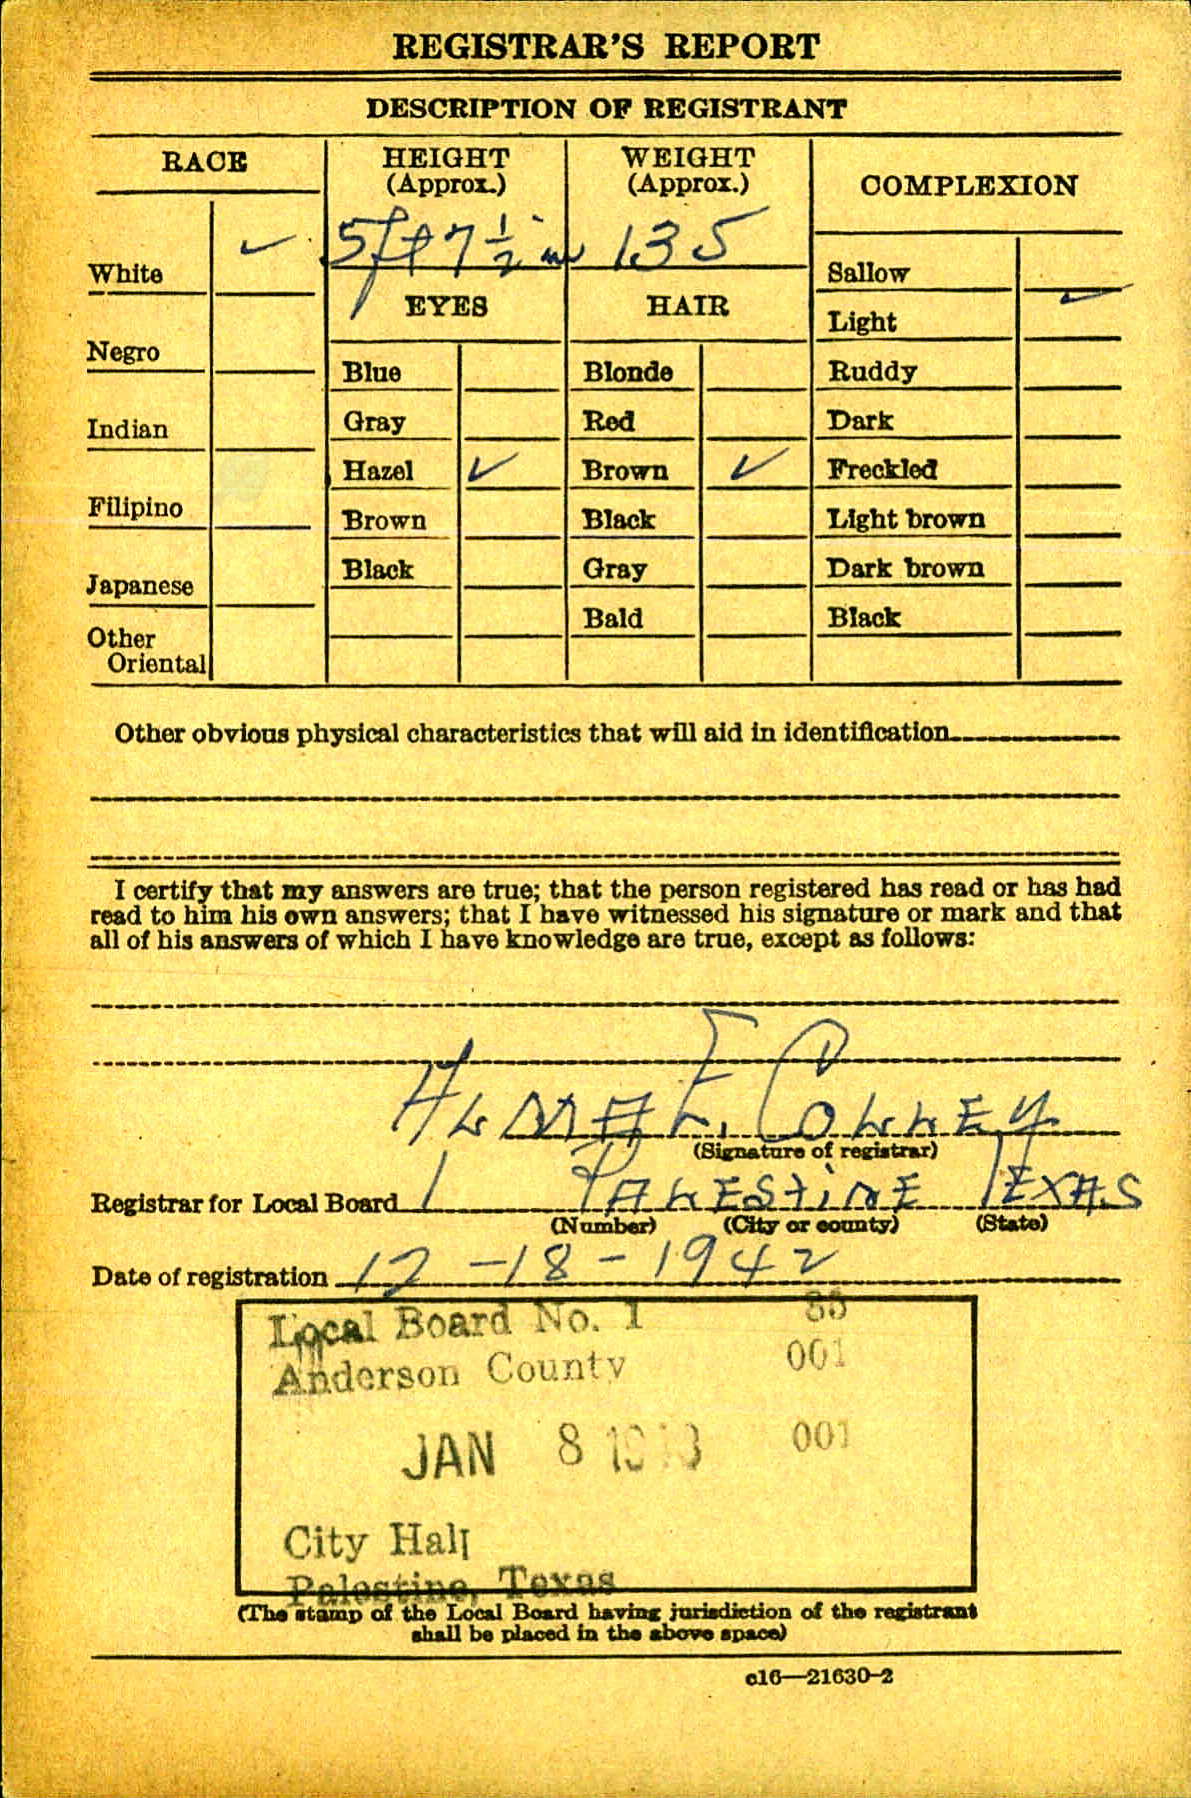 REGISTRAR'S REPORT
DESCRIPTION OF REGISTRANT
RACE
HEIGHT
(Approx.)
WEIGHT
(Approx.)
COMPLEXION
5ft 7 1/2 in
135
White ✓
Negro
Indian
Filipino
Japanese
Other
Oriental
EYES
Blue
Gray
Hazel ✓
Brown
Black
HAIR
Blonde
Red
Brown ✓
Black
Gray
Bald
Sallow
Light ✓
Ruddy
Dark
Freckled
Light brown
Dark brown
Black
Other obvious physical characteristics that will aid in identification
I certify that my answers are true; that the person registered has read or has had
read to him his own answers; that I have witnessed his signature or mark and that
all of his answers of which I have knowledge are true, except as follows:
E. Colley
(Signature of registrar)
Registrar for Local Board 1 Palestine Texas
(Number) (City or county) (State)
Date of registration 12-18-1942
Local Board No. 1
Anderson County 001
JAN 8 1943 001
City Hall
Palestine, Texas
(The stamp of the Local Board having jurisdiction of the registrant
shall be placed in the above space)
c16—21630-2